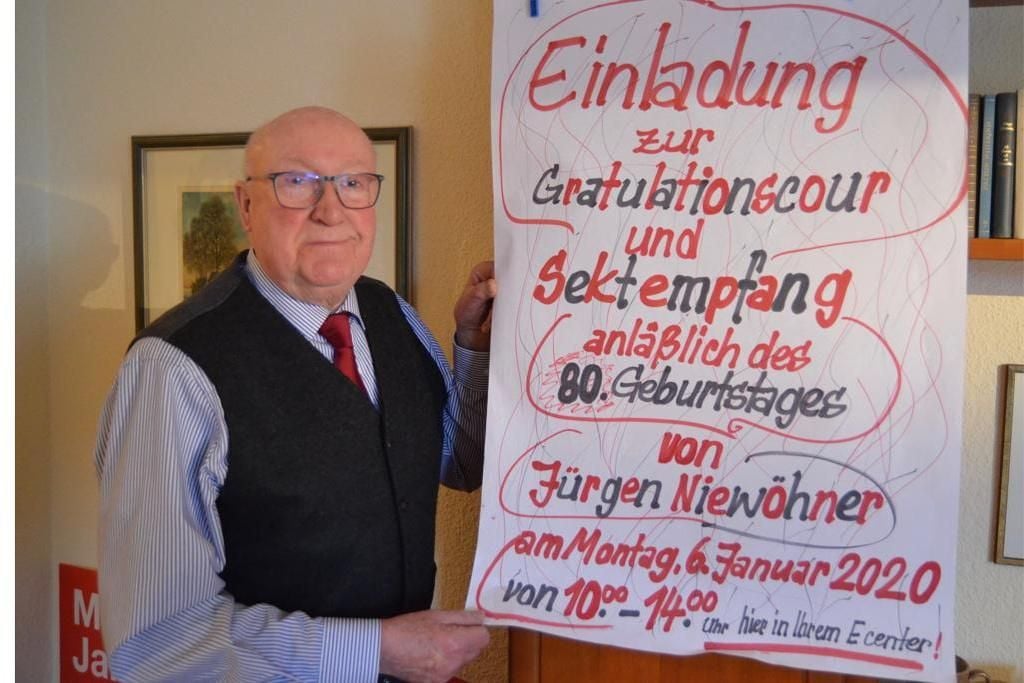 Einladung
zur
Gratulationscour
und
Sektempfang
anläßlich des
80. Geburtstages
von
Jürgen Niewöhner
am Montag, 6. Januar 2020
von 10.00 - 14.00 Uhr hier in Ihrem E center!
M
Ja